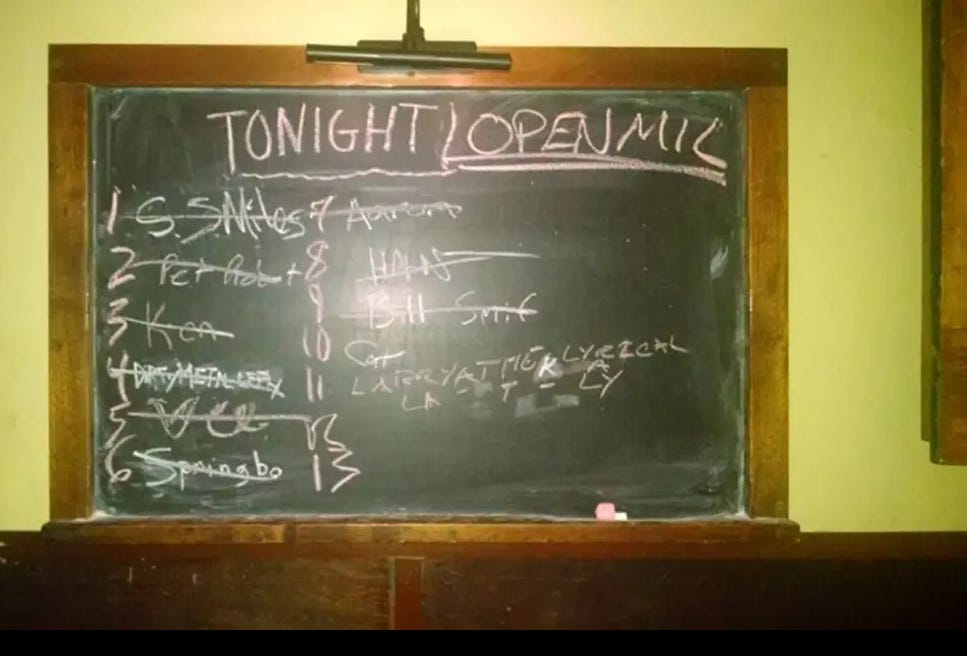 TONIGHT OPEN MIC
1 S. SMiles
2 Pet Robot
3 Ken
4 DIRTY METAL LEFTY
5
6 Springbo
7 Aarom
8 HAN
9 Bill Smif
10 Cat
11 LARRY AT THE LYRICAL
LA - T - LY
12
13